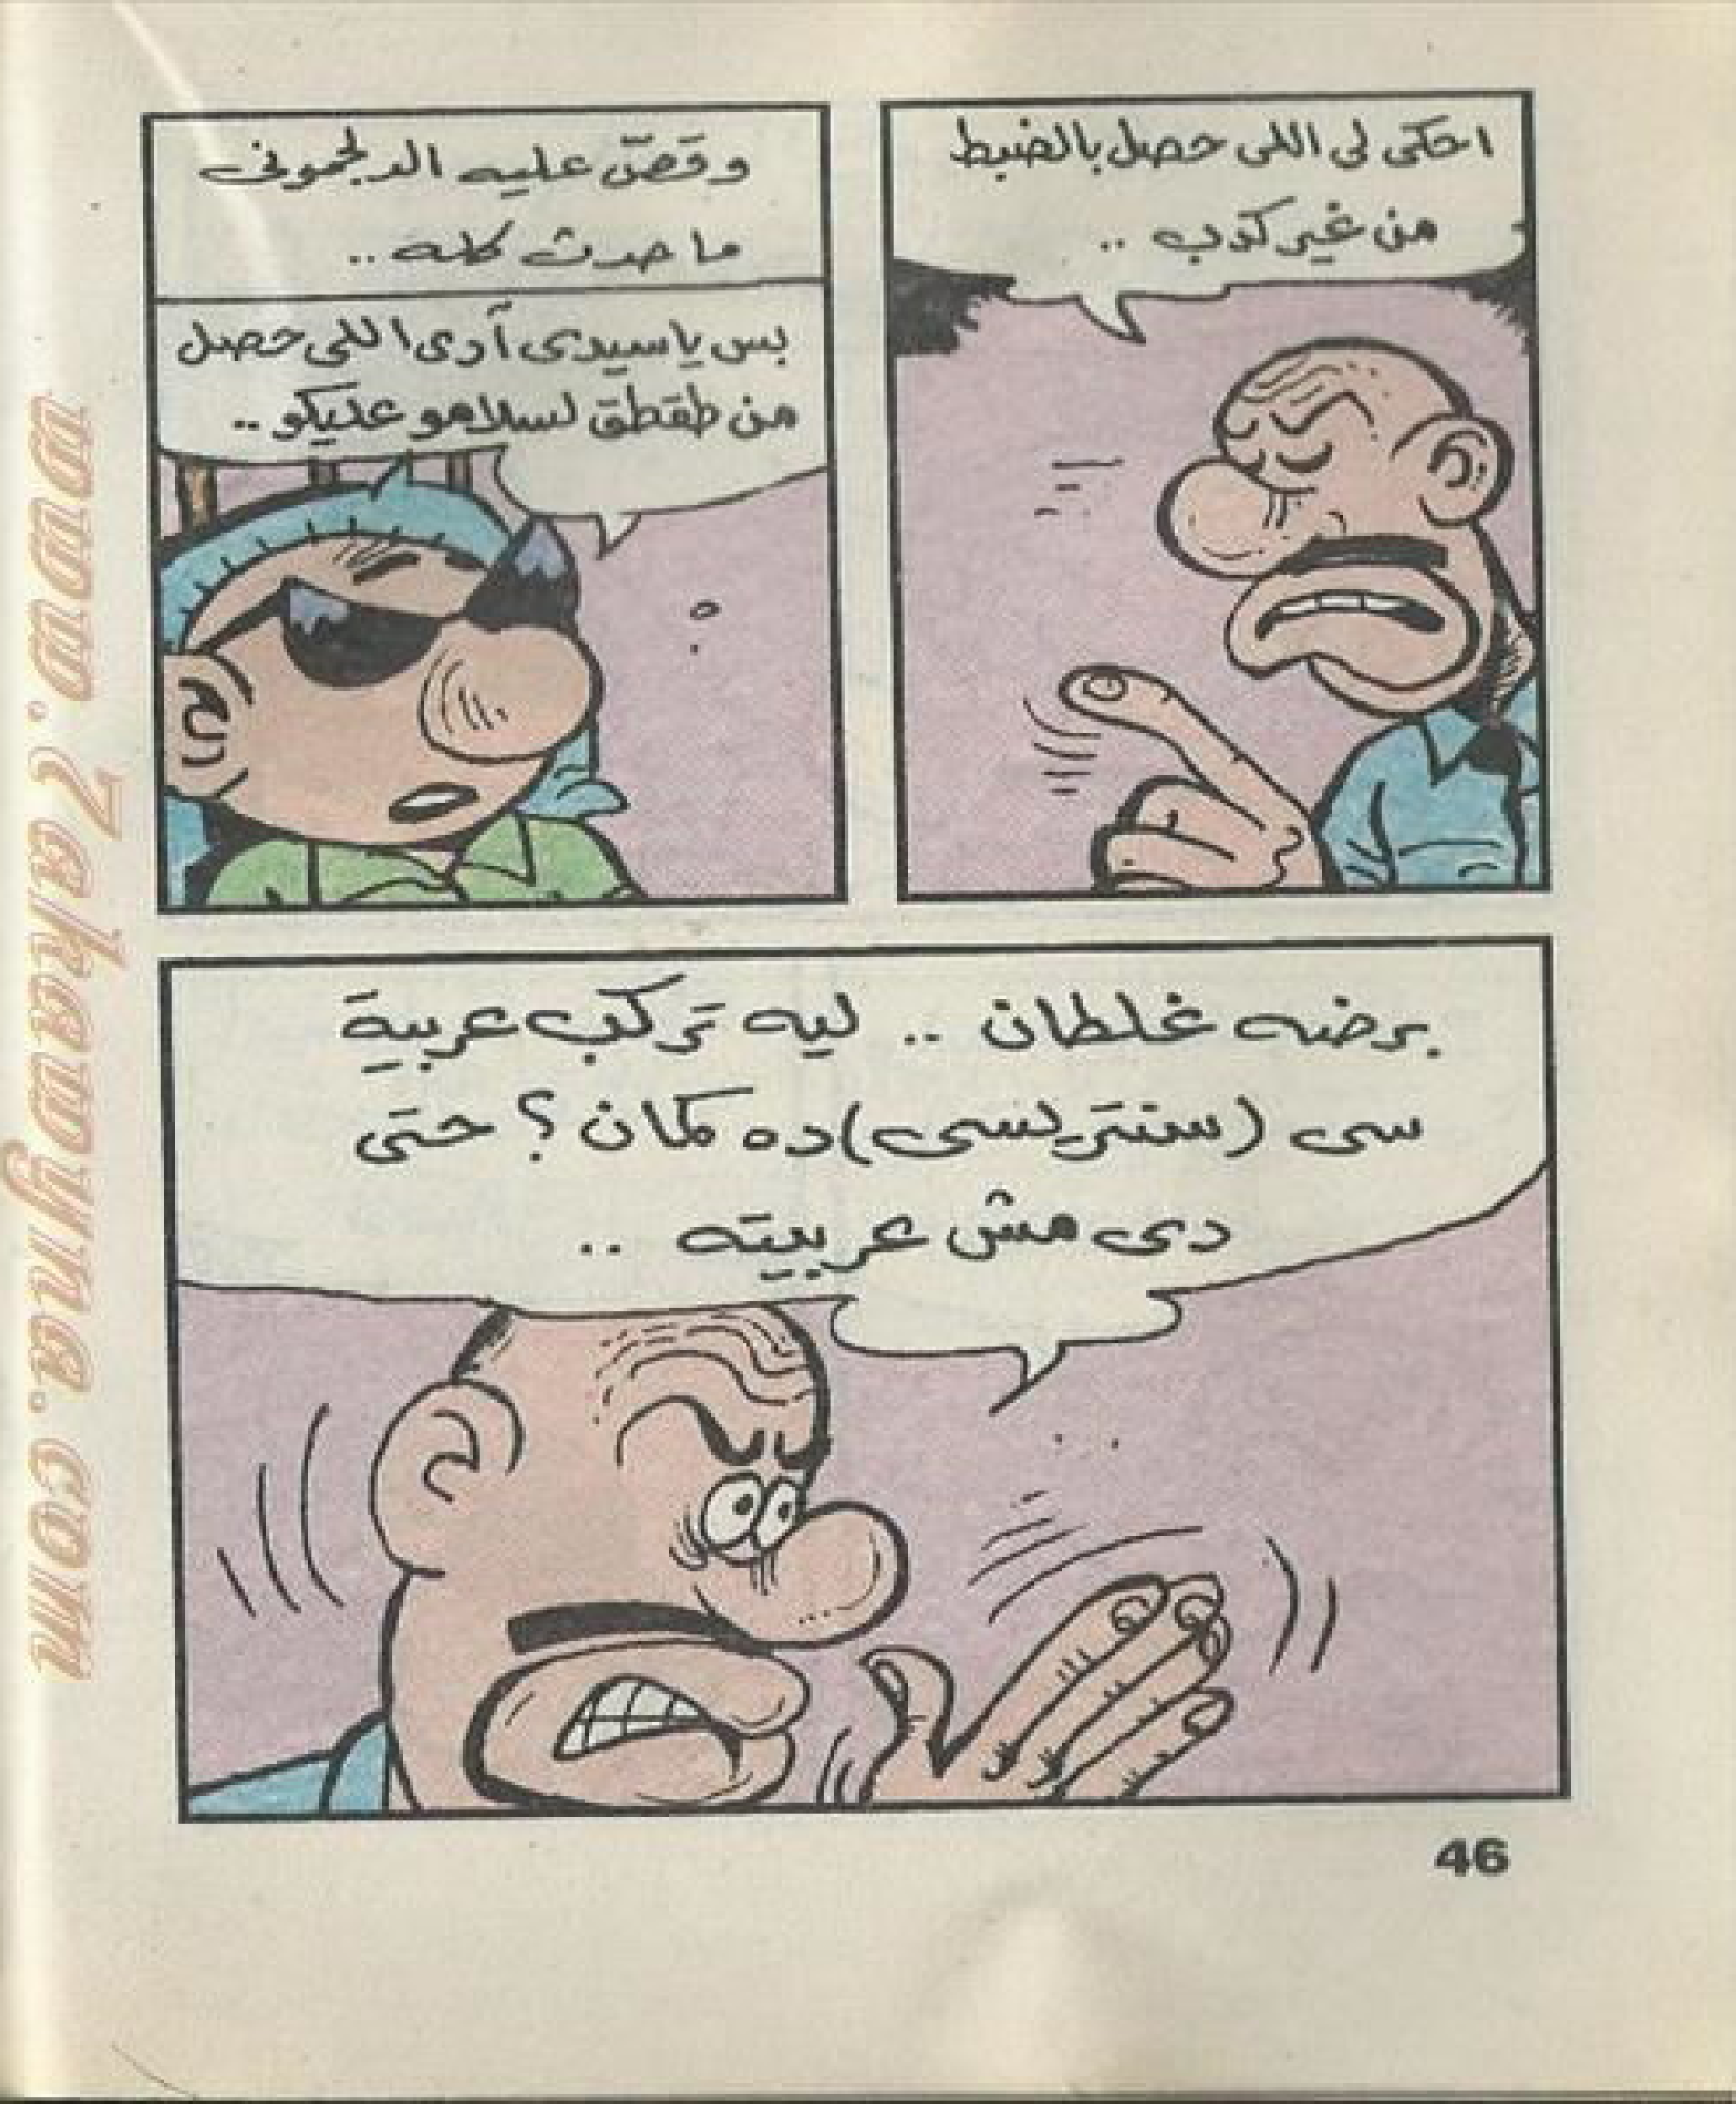 احكى لى اللى حصل بالضبط
من غير كدب ..
وقصّ عليه الدلجمونى
ما حدث كله ..
بس ياسيدى آدى اللى حصل
من طقطق لسلامو عليكو ..
برضه غلطان .. ليه تركب عربية
سى (سنتريسى) ده كمان ؟ حتى
دى مش عربيته ..
46
www.7akawyna.com